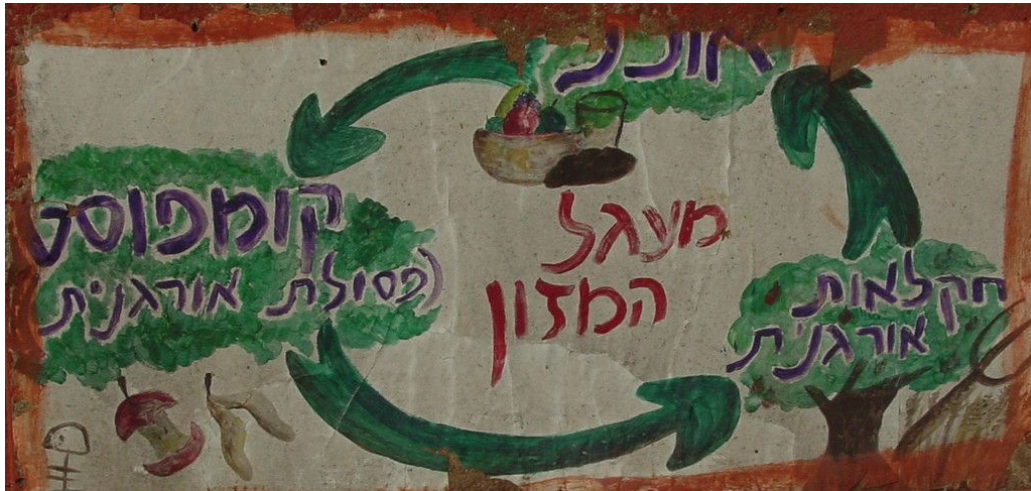 אוכל
מעגל
המזון
קומפוסט
(פסולת אורגנית
חקלאות
אורגנית